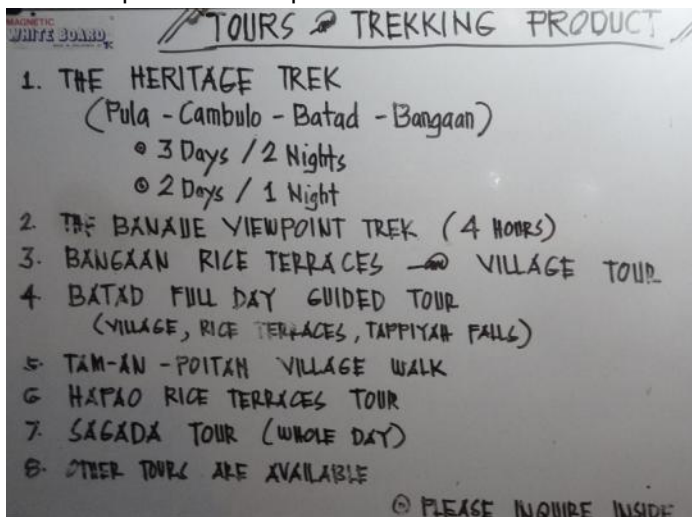 MAGNETIC
WHITE BOARD
TOURS & TREKKING PRODUCT
1. THE HERITAGE TREK
(Pula - Cambulo - Batad - Bangaan)
• 3 Days / 2 Nights
• 2 Days / 1 Night
2. THE BANAUE VIEWPOINT TREK (4 HOURS)
3. BANGAAN RICE TERRACES VILLAGE TOUR
4 BATAD FULL DAY GUIDED TOUR
(VILLAGE, RICE TERRACES, TAPPIYAH FALLS)
5. TAM-AN - POITAN VILLAGE WALK
6 HAPAO RICE TERRACES TOUR
7. SAGADA TOUR (WHOLE DAY)
8. OTHER TOURS ARE AVAILABLE
PLEASE INQUIRE INSIDE